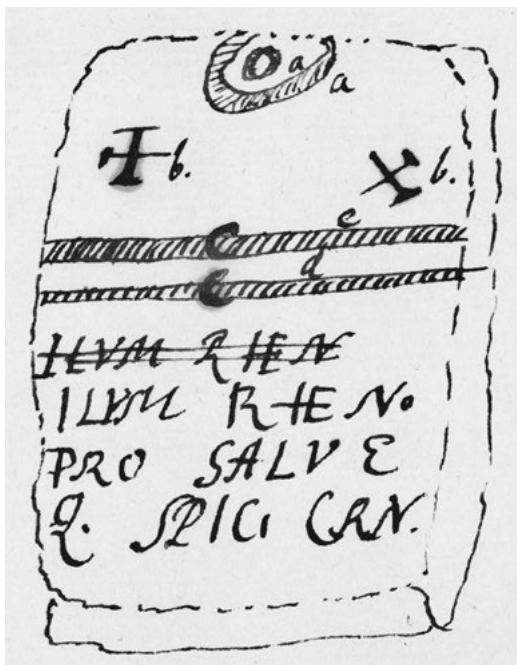 a
a
b. b.
c
d
ILVM RHEN
ILVM RHEN.
PRO SALVE
Q. SPICI CRN.